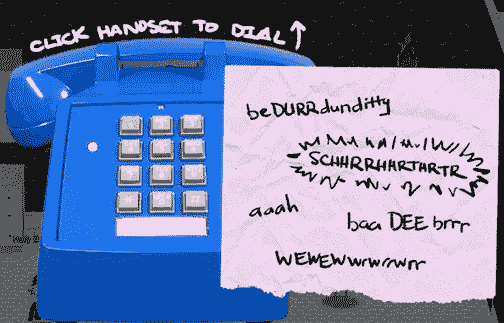 CLICK HANDSET TO DIAL
beDURRdunditty
SCHHRRHHRTHRTR
aaah
baa DEE brrr
WEWEWwrwrrwrr